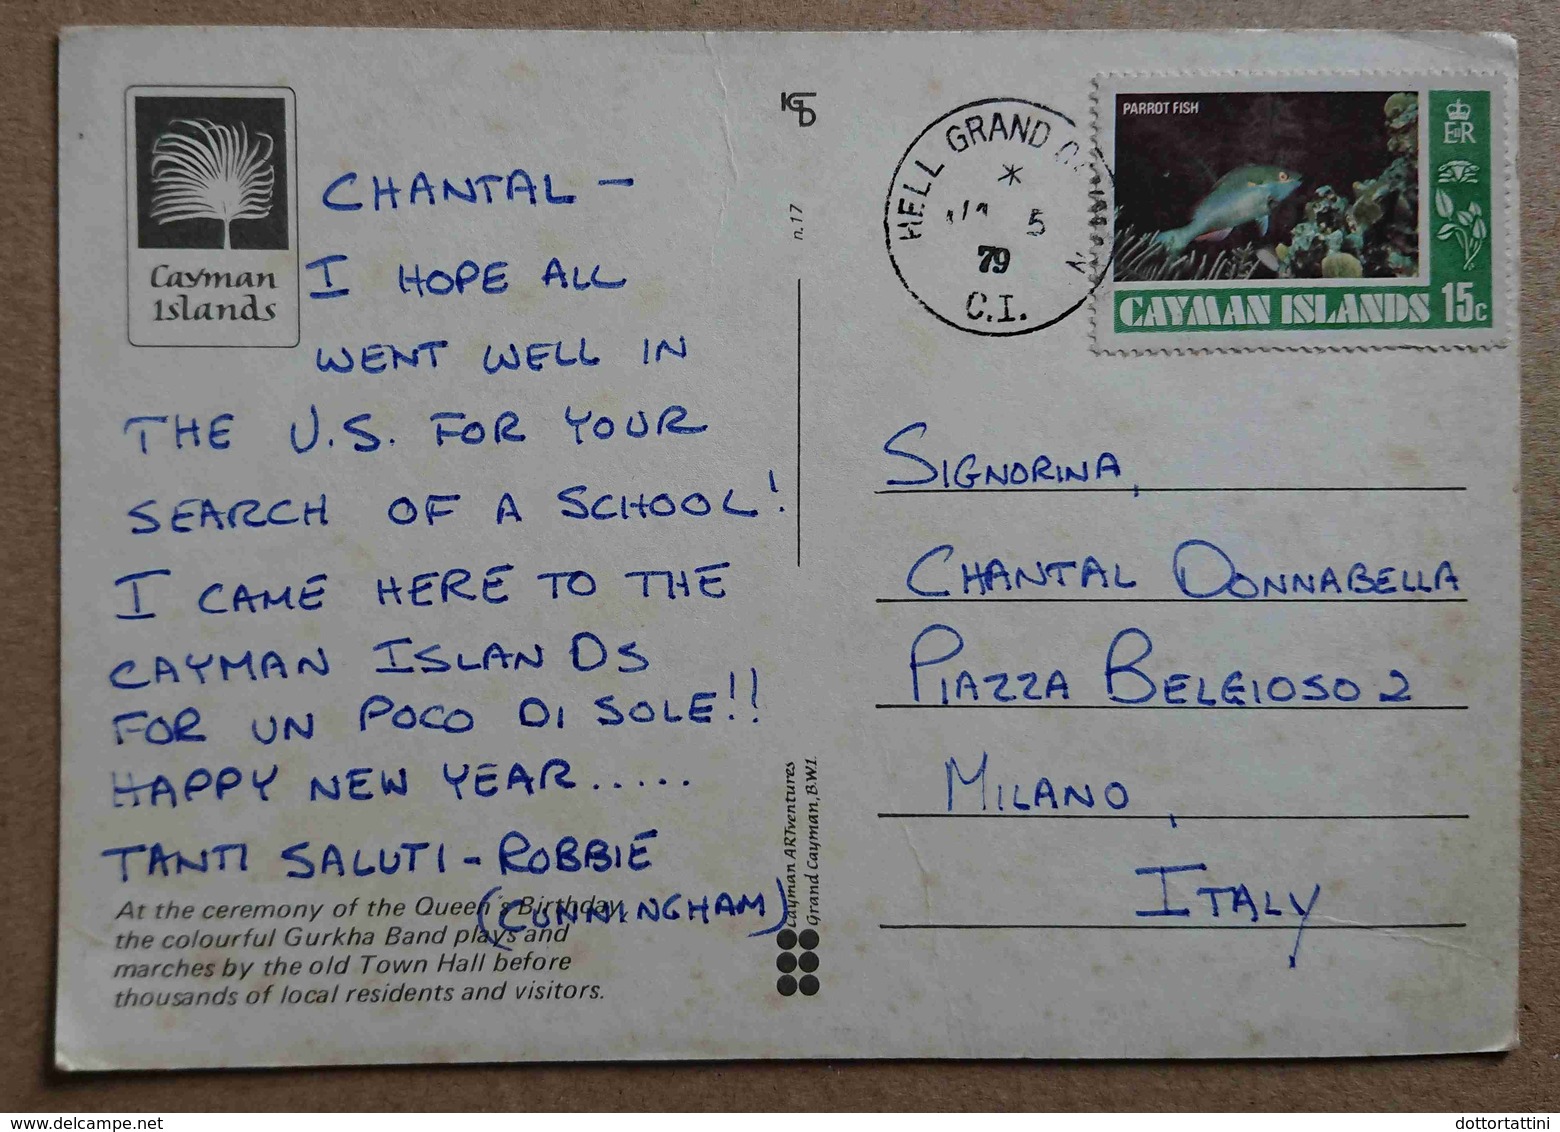 Cayman
Islands
CHANTAL –
I HOPE ALL
WENT WELL IN
THE U.S. FOR YOUR
SEARCH OF A SCHOOL!
I CAME HERE TO THE
CAYMAN ISLANDS
FOR UN POCO DI SOLE!!
HAPPY NEW YEAR.....
TANTI SALUTI – ROBBIE
(CUNNINGHAM)
At the ceremony of the Queen's Birthday,
the colourful Gurkha Band plays and
marches by the old Town Hall before
thousands of local residents and visitors.
n.17
Cayman ARTventures
Grand Cayman, B.W.I.
HELL GRAND
5
79
C.I.
PARROT FISH
EIIR
CAYMAN ISLANDS 15c
SIGNORINA,
CHANTAL DONNABELLA
PIAZZA BELGIOSO 2
MILANO,
ITALY
dottortattini